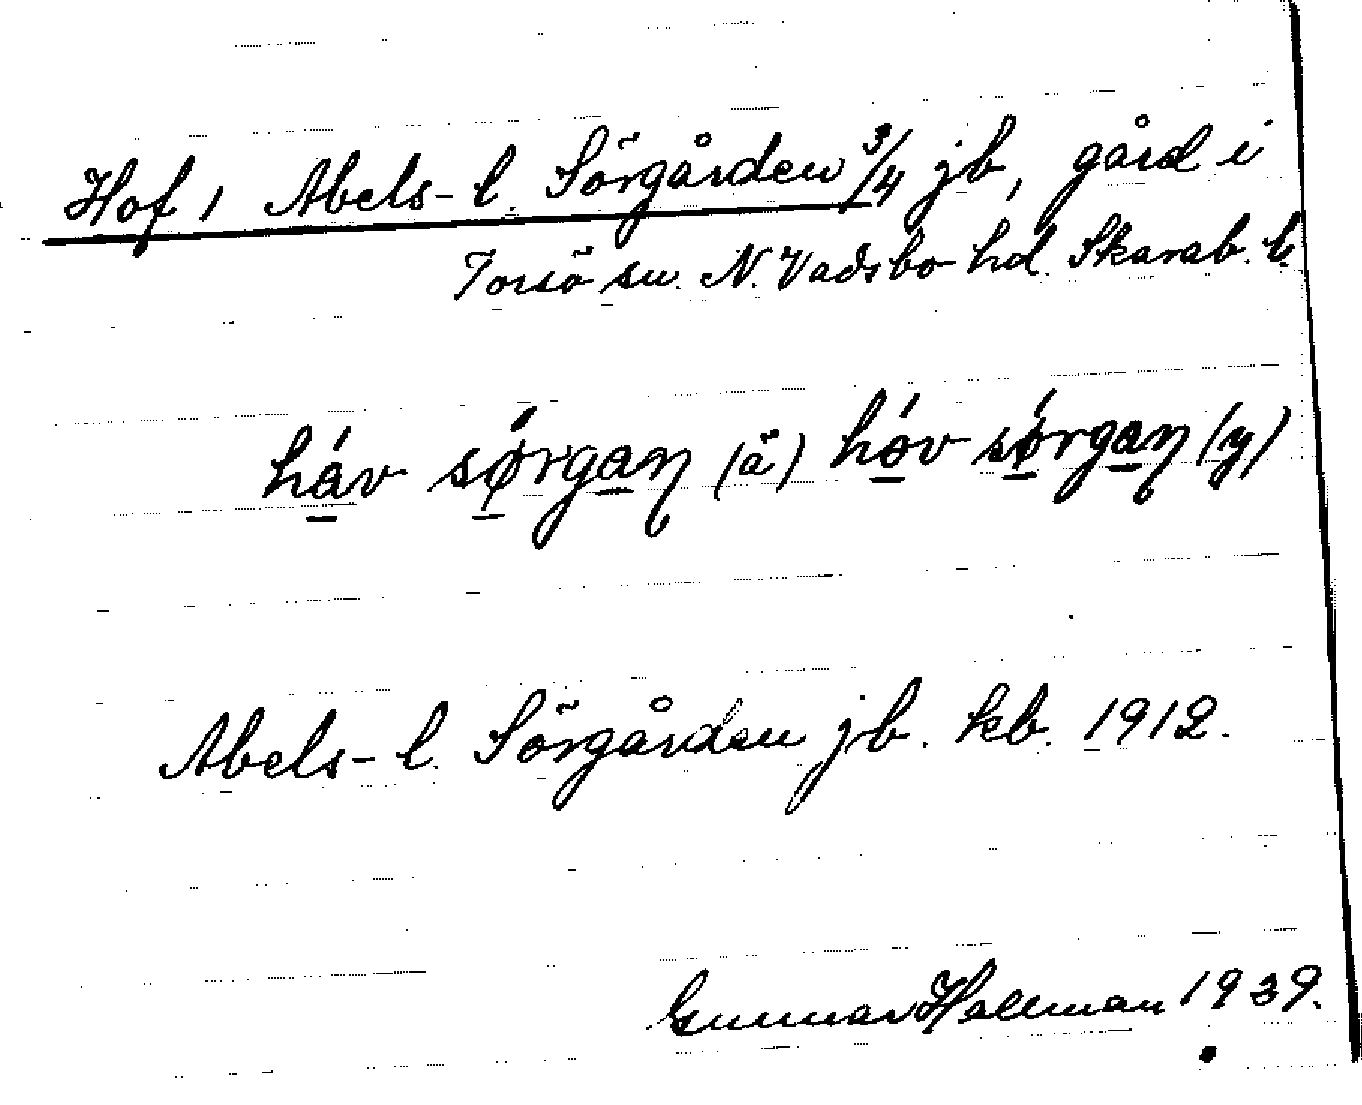 Hof, Abels- l. Sörgården 3/4 jb, gård i
Torsö sn. N. Vadsbo hd. Skarab. l.
háv sǿrgaŋ (ä) hóv sǿrgaŋ (y)
Abels- l. Sörgården jb. kb. 1912.
Gunnar Hallman 1939.